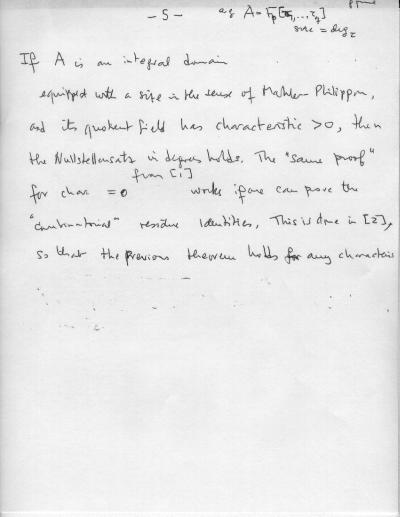 - 5 -
eg A = F_p[τ_1,...,τ_q]
size = deg_τ
If A is an integral domain
equipped with a size in the sense of Mahler - Philippon,
and its quotient field has characteristic >0, then
the Nullstellensatz in degrees holds. The "same proof"
from [1]
for char = 0 works if one can prove the
"combinatorial" residue identities, This is done in [2],
so that the previous theorem holds for any characteris